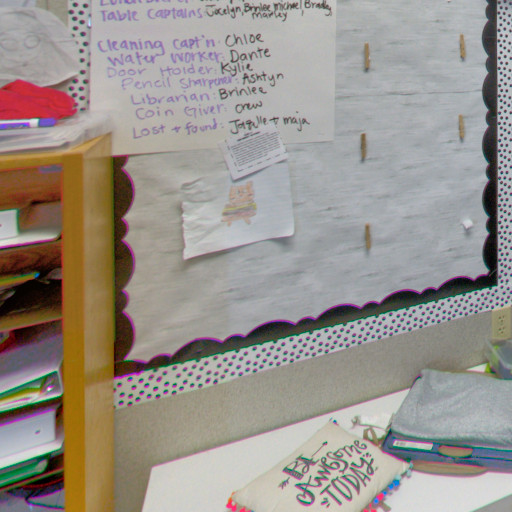 Table Captains: Jocelyn, Brinlee, Michael, Bradley,
Manley
Cleaning Capt'n: Chloe
Water Worker: Dante
Door Holder: Kylie
Pencil Sharpener: Ashtyn
Librarian: Brinlee
Coin Giver: Crew
Lost & found: & maja
BE
AWESOME
TODAY